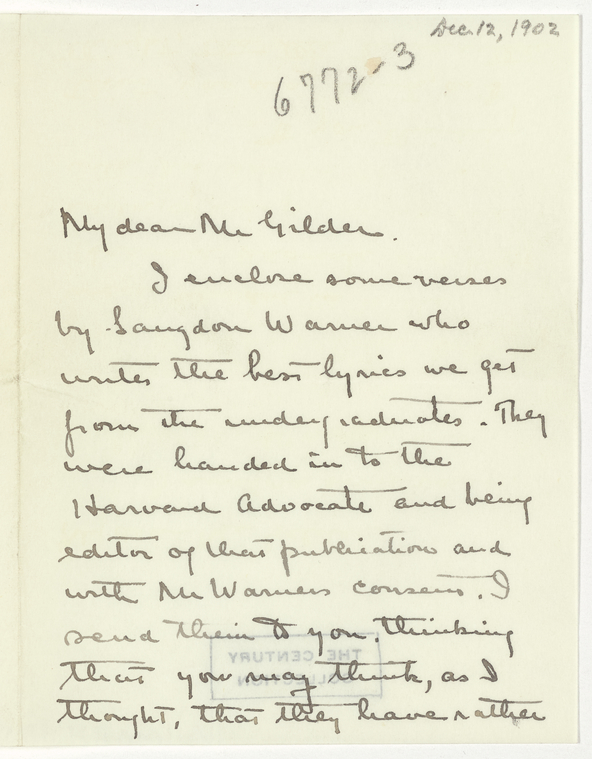 Dec. 12, 1902
6772-3
My dear Mr Gilder.
I enclose some verses
by Langdon Warner who
writes the best lyrics we get
from the undergraduates. They
were handed in to the
Harvard Advocate and being
editor of that publication and
with Mr Warners consent, I
send them to you thinking
THE CENTURY
COLLECTION
that you may think, as I
thought, that they have rather